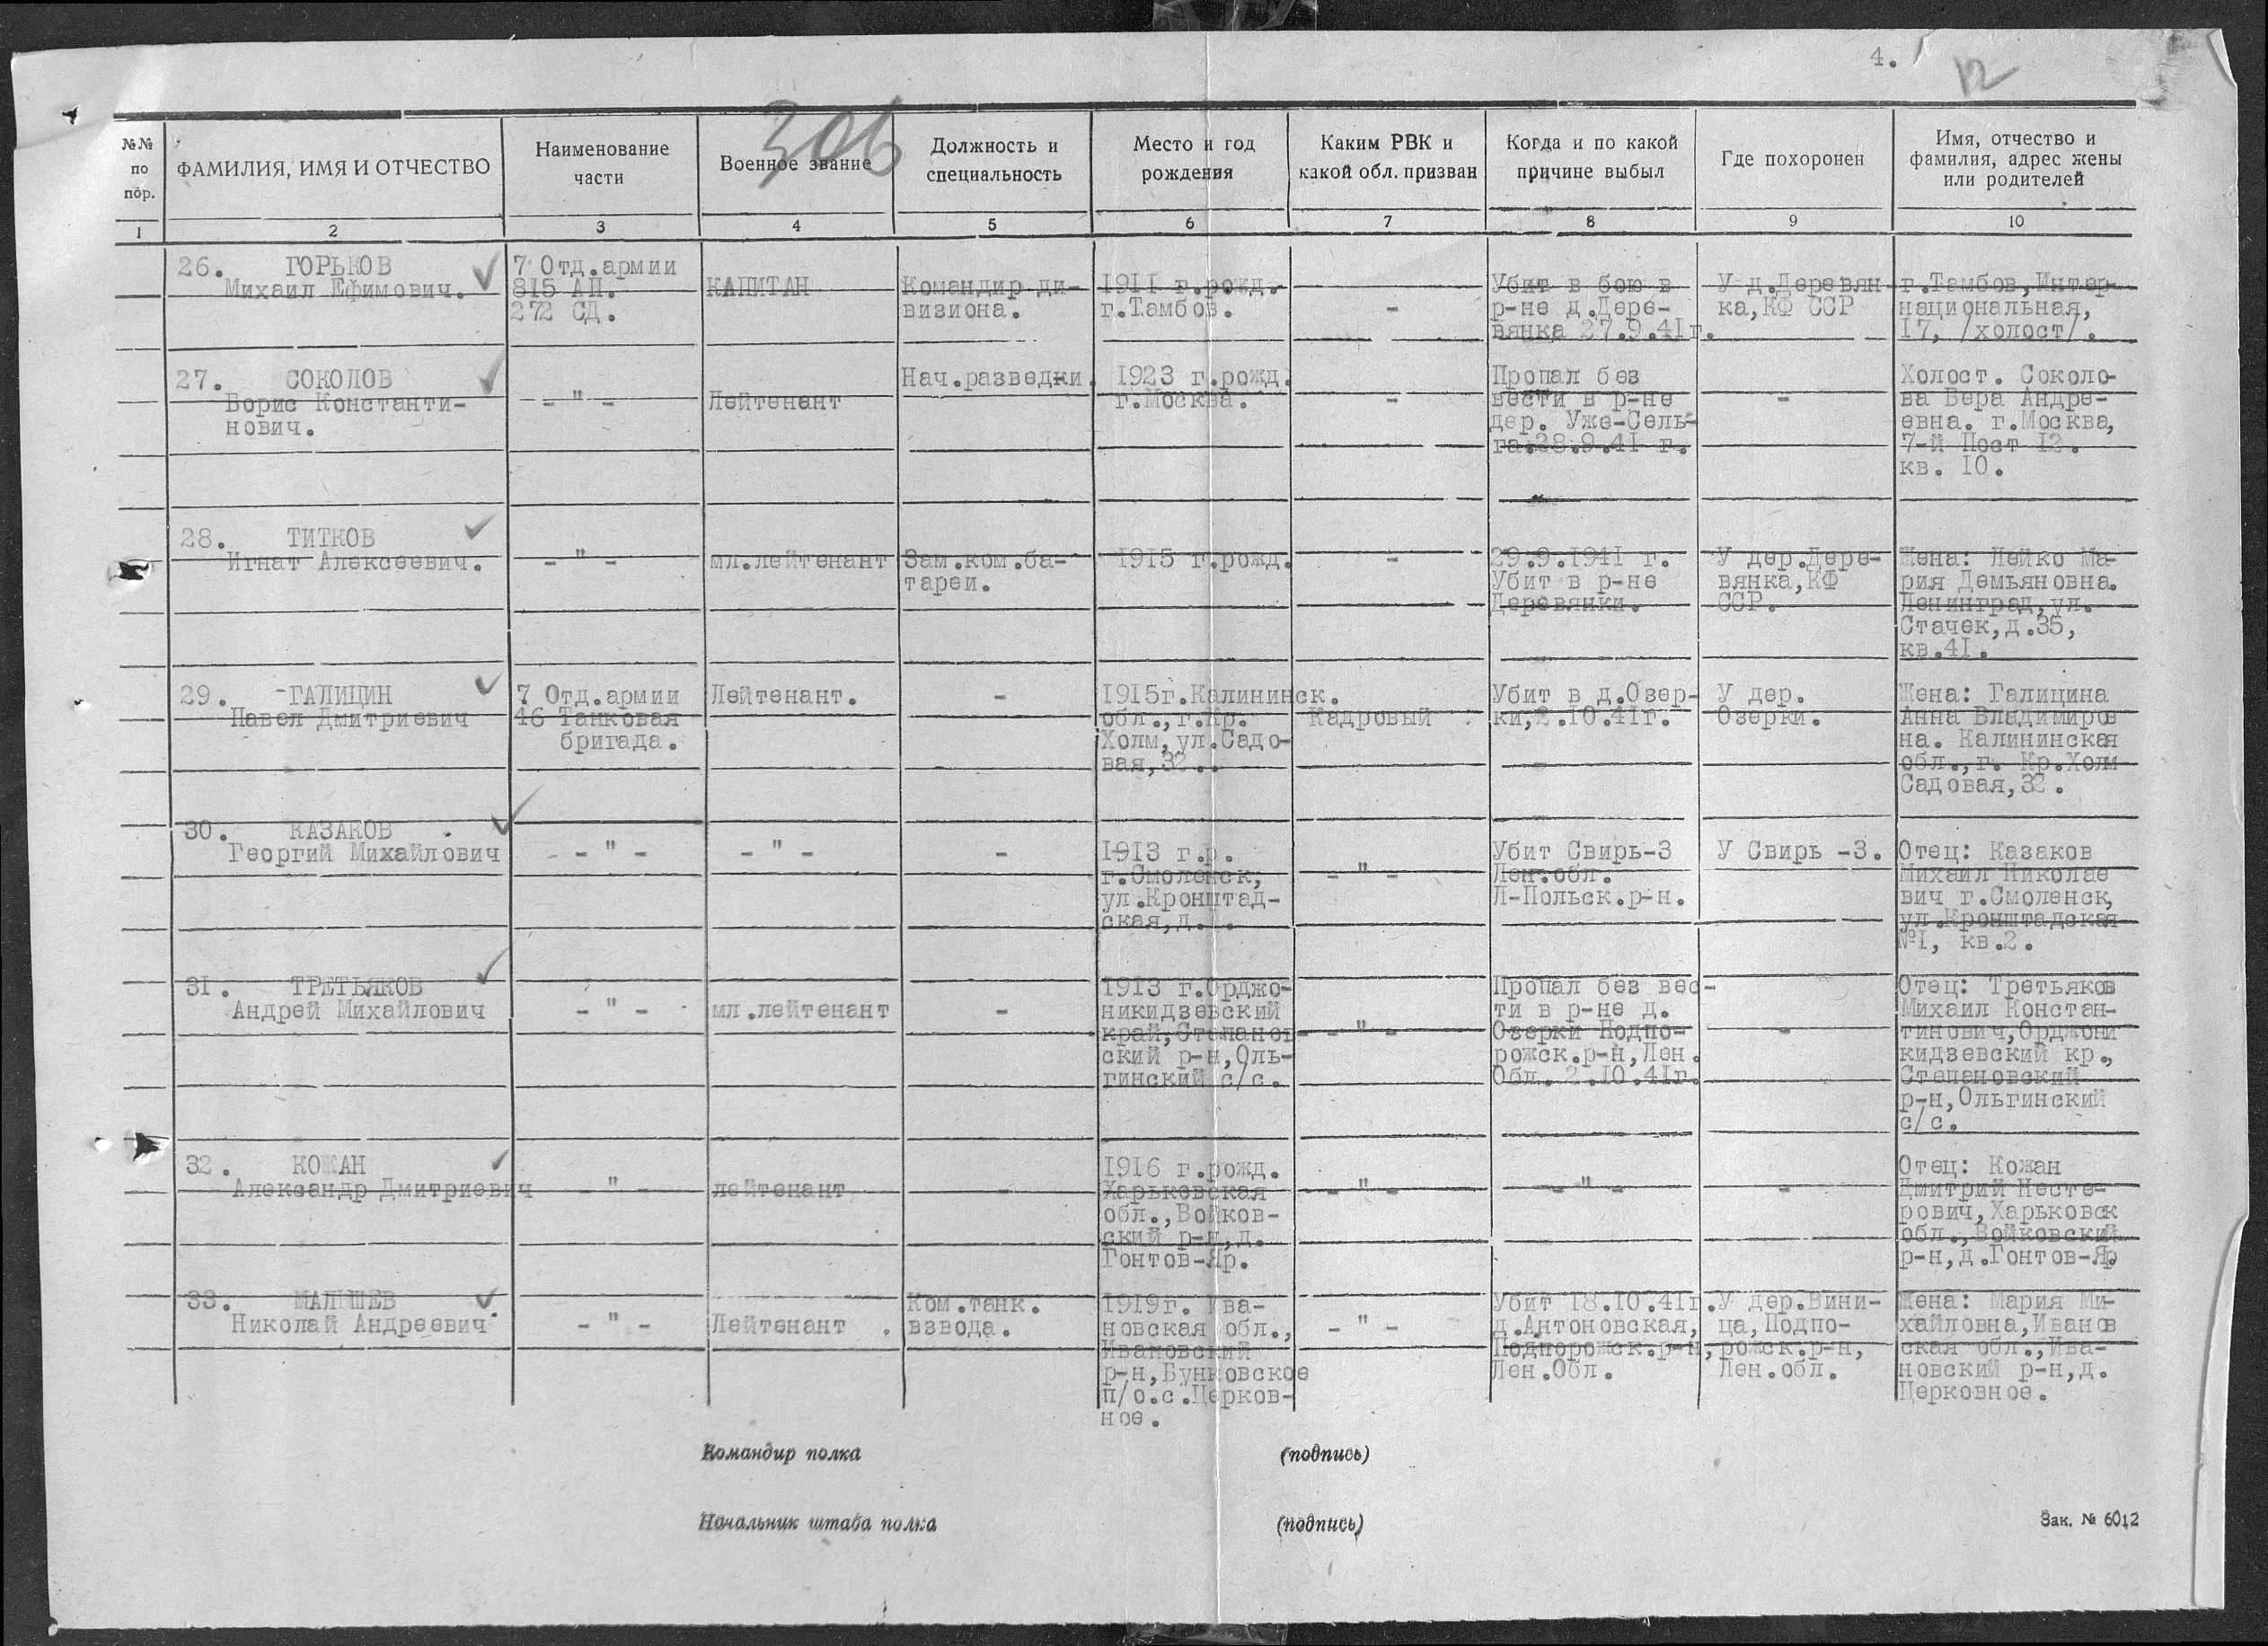 4.
12
306
№№ по пор.
ФАМИЛИЯ, ИМЯ И ОТЧЕСТВО
Наименование
части
Военное звание
Должность и
специальность
Место и год
рождения
Каким РВК и
какой обл. призван
Когда и по какой
причине выбыл
Где похоронен
Имя, отчество и
фамилия, адрес жены
или родителей
1 2 3 4 5 6 7 8 9 10
26. ГОРЬКОВ
Михаил Ефимович.
7 Отд.армии
815 АП.
272 СД.
КАПИТАН
Командир ди-
визиона.
1911 г.рожд.
г.Тамбов.
-
Убит в бою в
р-не д.Дере-
вянка 27.9.41г.
У д.Деревян-
ка,КФ ССР
г.Тамбов,Интер-
национальная,
17, /холост/.
27. СОКОЛОВ
Борис Константи-
нович.
- " -
Лейтенант
Нач.разведки.
1923 г.рожд.
г.Москва.
-
Пропал без
вести в р-не
дер. Уже-Сель-
га.28.9.41 г.
-
Холост. Соколо-
ва Вера Андре-
евна. г.Москва,
7-й Пост 12.
кв. 10.
28. ТИТКОВ
Игнат Алексеевич.
- " -
мл.лейтенант
Зам.ком.ба-
тареи.
1915 г.рожд.
-
29.9.1941 г.
Убит в р-не
Деревянки.
У дер.Дере-
вянка,КФ
ССР.
Жена: Лейко Ма-
рия Демьяновна.
Ленинград,ул.
Стачек,д.35,
кв.41.
29. ГАЛИЦИН
Павел Дмитриевич
7 Отд.армии
46 Танковая
бригада.
Лейтенант.
-
1915г.Калининск.
обл.,г.Кр.
Холм,ул.Садо-
вая,32..
Кадровый
Убит в д.Озер-
ки,2.10.41г.
У дер.
Озерки.
Жена: Галицина
Анна Владимиров
на. Калининская
обл.,г. Кр.Холм
Садовая,32.
30. КАЗАКОВ
Георгий Михайлович
- " -
- " -
-
1913 г.р.
г.Смоленск,
ул.Кронштад-
ская,д.1.
- " -
Убит Свирь-3
Лен.обл.
Л-Польск.р-н.
У Свирь -3.
Отец: Казаков
Михаил Николае
вич г.Смоленск,
ул.Кронштадская
№1, кв.2.
31. ТРЕТЬЯКОВ
Андрей Михайлович
- " -
мл.лейтенант
-
1913 г.Орджо-
никидзевский
край,Степанов
ский р-н,Оль-
гинский с/с.
- " -
Пропал без вес-
ти в р-не д.
Озерки Подпо-
рожск.р-н,Лен.
Обл. 2.10.41г.
-
Отец: Третьяков
Михаил Констан-
тинович,Орджони
кидзевский кр.,
Степановский
р-н,Ольгинский
с/с.
32. КОЖАН
Александр Дмитриевич
- " -
лейтенант
-
1916 г.рожд.
Харьковская
обл.,Войков-
ский р-н,д.
Гонтов-Яр.
- " -
- " -
-
Отец: Кожан
Дмитрий Несте-
рович,Харьковск
обл.,Войковский
р-н,д.Гонтов-Яр
33. МАЛЫШЕВ
Николай Андреевич
- " -
Лейтенант .
Ком.танк.
взвода.
1919г. Ива-
новская обл.,
Ивановский
р-н,Бунковское
п/о.с.Церков-
ное.
- " -
Убит 18.10.41г.
д.Антоновская,
Подпорожск.р-н,
Лен.Обл.
У дер.Вини-
ца,Подпо-
рожск.р-н,
Лен.обл.
Жена: Мария Ми-
хайловна,Иванов
ская обл.,Ива-
новский р-н,д.
Церковное.
Командир полка (подпись)
Начальник штаба полка (подпись)
Зак. № 6012